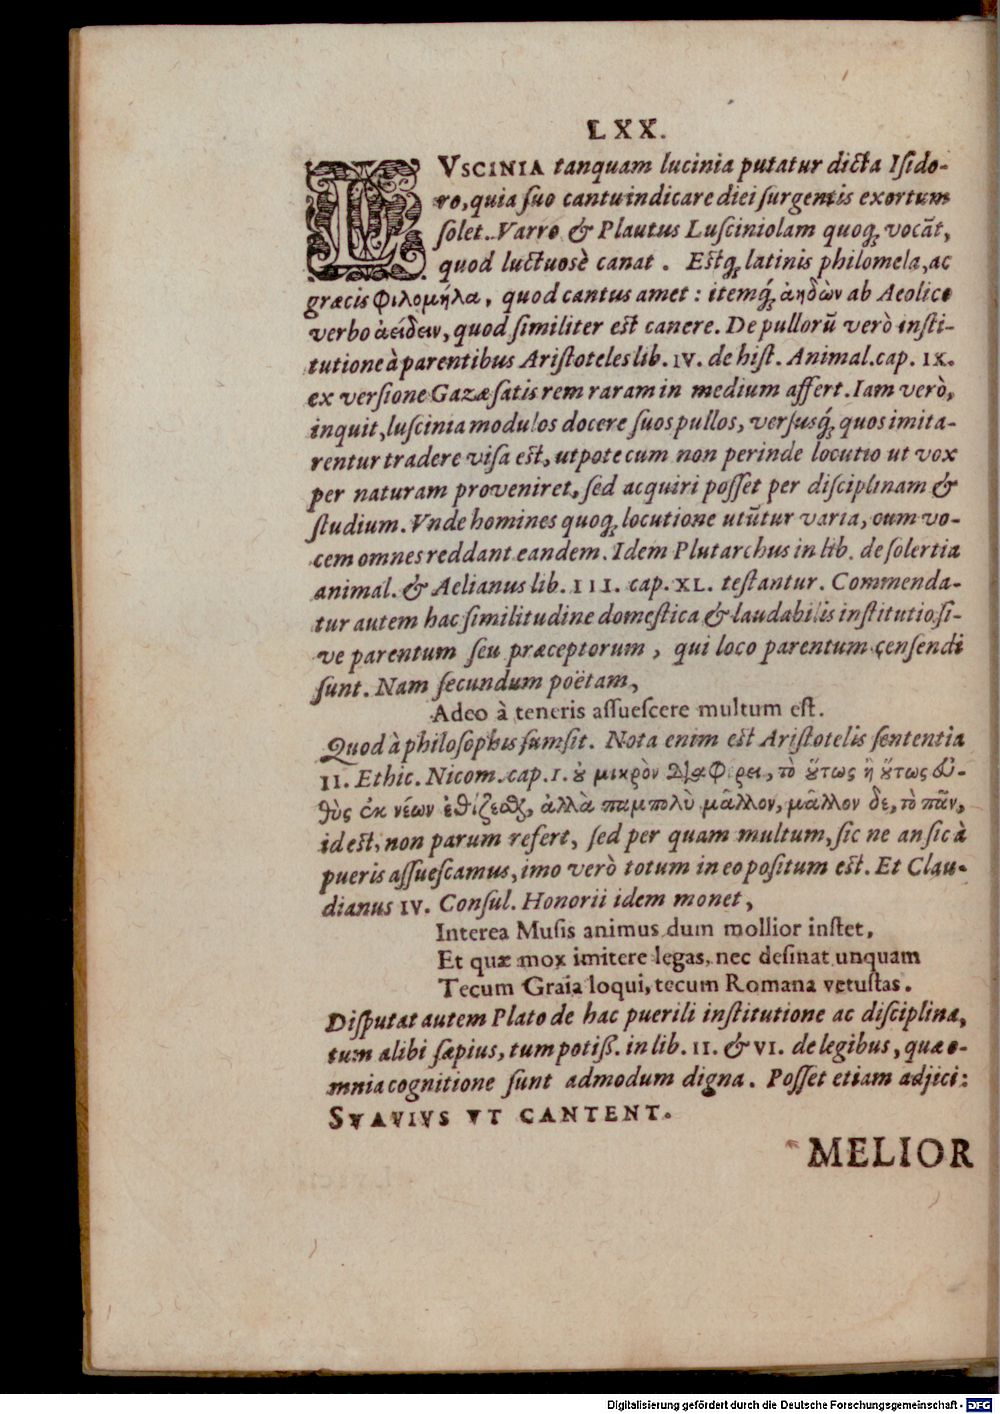 LXX.
LVSCINIA tanquam lucinia putatur dicta Isido-
ro, quia suo cantu indicare diei surgentis exortum
solet. Varro & Plautus Lusciniolam quoq; vocãt,
quod luctuosè canat. Estq; latinis philomela, ac
græcis φιλομήλα, quod cantus amet: itemq́; ἀηδὼν ab Aeolico
verbo ἀείδειν, quod similiter est canere. De pullorũ verò insti-
tutione à parentibus Aristoteles lib. IV. de hist. Animal. cap. IX.
ex versione Gazæ satis rem raram in medium affert. Iam verò,
inquit, luscinia modulos docere suos pullos, versusq́; quos imita-
rentur tradere visa est, utpote cum non perinde locutio ut vox
per naturam proveniret, sed acquiri posset per disciplinam &
studium. Vnde homines quoq; locutione utũtur varia, cum vo-
cem omnes reddant eandem. Idem Plutarchus in lib. de solertia
animal. & Aelianus lib. III. cap. XL. testantur. Commenda-
tur autem hac similitudine domestica & laudabilis institutio si-
ve parentum seu præceptorum, qui loco parentum censendi
sunt. Nam secundum poëtam,
Adeo à teneris assuescere multum est.
Quod à philosophis sumsit. Nota enim est Aristotelis sententia
II. Ethic. Nicom. cap. I. ȣ μικρὸν διαφέρει, τὸ ȣ̔́τως ἢ ȣ̔́τως εὐ-
θὺς ἐκ νέων ἐθίζεσθ, ἀλλὰ παμπολὺ μᾶλλον, μᾶλλον δὲ, τὸ πᾶν,
id est, non parum refert, sed per quam multum, sic ne an sic à
pueris assuescamus, imo verò totum in eo positum est. Et Clau-
dianus IV. Consul. Honorii idem monet,
Interea Musis animus dum mollior instet,
Et quæ mox imitere legas, nec desinat unquam
Tecum Graia loqui, tecum Romana vetustas.
Disputat autem Plato de hac puerili institutione ac disciplina,
tum alibi sæpius, tum potiss. in lib. II. & VI. de legibus, quæ o-
mnia cognitione sunt admodum digna. Posset etiam adjici:
SVAVIVS VT CANTENT.
MELIOR
Digitalisierung gefördert durch die Deutsche Forschungsgemeinschaft - DFG